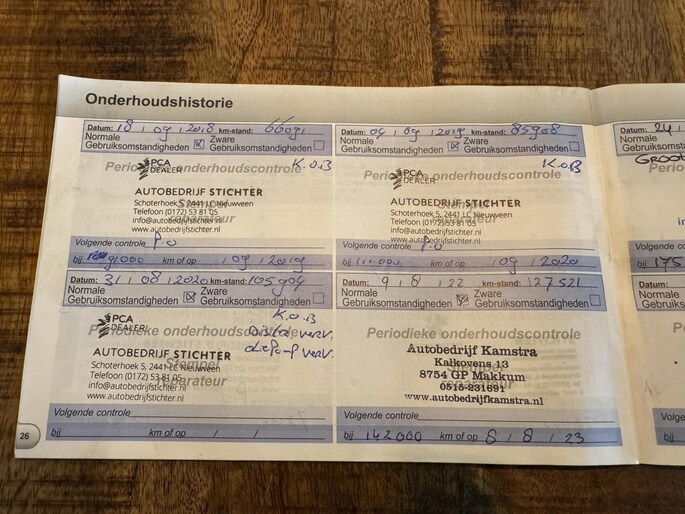 Onderhoudshistorie
Datum: 18 / 09 / 2018 km-stand: 66091
Normale Gebruiksomstandigheden Zware Gebruiksomstandigheden
Periodieke onderhoudscontrole
K.O.B
PCA DEALER
AUTOBEDRIJF STICHTER
Schoterhoek 5, 2441 LC Nieuwveen
Telefoon (0172) 53 81 05
info@autobedrijfstichter.nl
www.autobedrijfstichter.nl
Stempel reparateur
Volgende controle P.O
bij 91000 km of op / 09 / 2019
Datum: 04 / 09 / 2019 km-stand: 85908
Normale Gebruiksomstandigheden Zware Gebruiksomstandigheden
Periodieke onderhoudscontrole
K.O.B
PCA DEALER
AUTOBEDRIJF STICHTER
Schoterhoek 5, 2441 LC Nieuwveen
Telefoon (0172) 53 81 05
info@autobedrijfstichter.nl
www.autobedrijfstichter.nl
Stempel reparateur
Volgende controle P.O
bij 110.000 km of op / 09 / 2020
Datum: 31 / 08 / 2020 km-stand: 105904
Normale Gebruiksomstandigheden Zware Gebruiksomstandigheden
Periodieke onderhoudscontrole
K.O.B
verv.
verv.
PCA DEALER
AUTOBEDRIJF STICHTER
Schoterhoek 5, 2441 LC Nieuwveen
Telefoon (0172) 53 81 05
info@autobedrijfstichter.nl
www.autobedrijfstichter.nl
Stempel reparateur
Volgende controle
bij km of op / /
Datum: 9 / 8 / 22 km-stand: 127521
Normale Gebruiksomstandigheden Zware Gebruiksomstandigheden
Periodieke onderhoudscontrole
Autobedrijf Kamstra
Kalkovens 13
8754 GP Makkum
0515-231691
www.autobedrijfkamstra.nl
Stempel reparateur
Volgende controle
bij 142000 km of op 8 / 8 / 23
26
Datum: 24 /
Normale
Gebruiksomst
GROOT
Perio
in
Volgende
bij 175
Datum:
Normale
Gebruiksomst
Perio
Volgende
bij